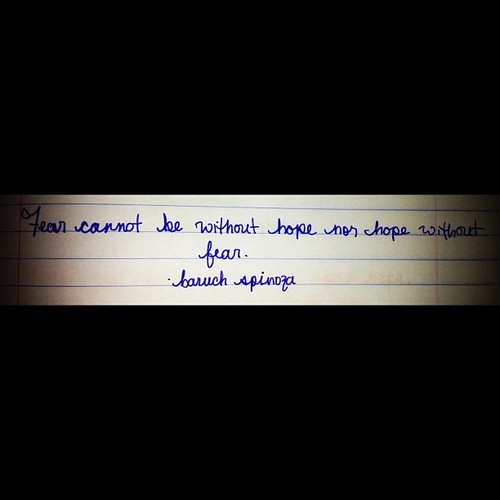 Fear cannot be without hope nor hope without
fear.
·baruch spinoza